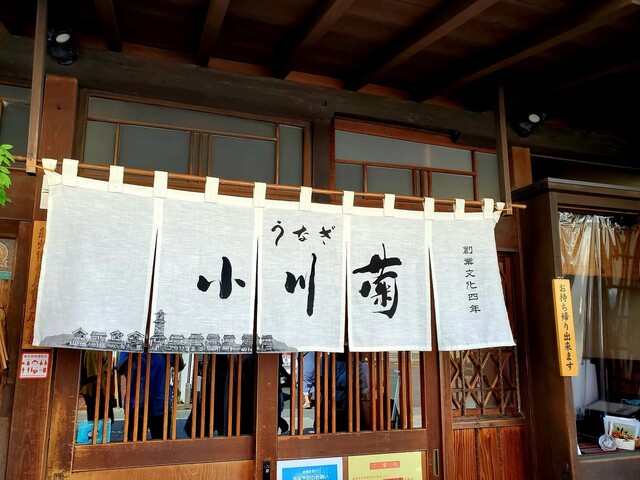 うなぎ
小川菊
創業文化四年
お持ち帰り出来ます